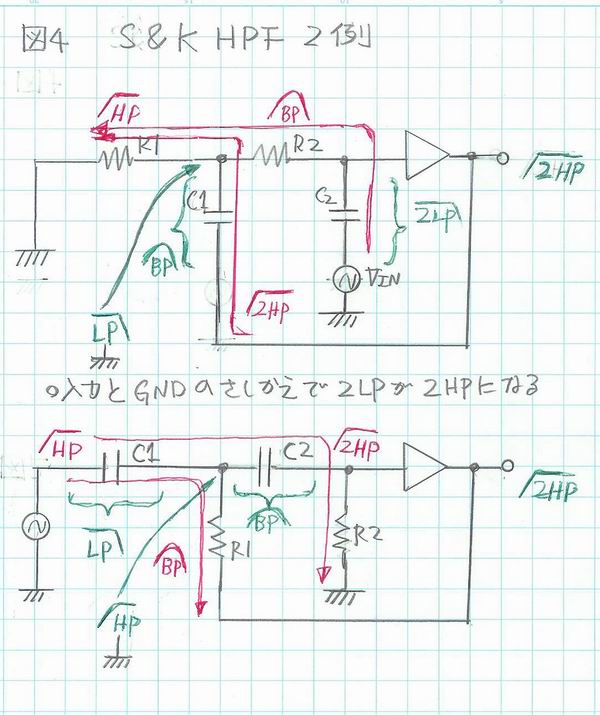 図4 S&K HPF 2例
HP
BP
R1
R2
2HP
C1
C2
2LP
BP
VIN
2HP
LP
○入力とGNDのさしかえで2LPが2HPになる
HP
C1
C2
2HP
2HP
LP
BP
R1
R2
BP
HP